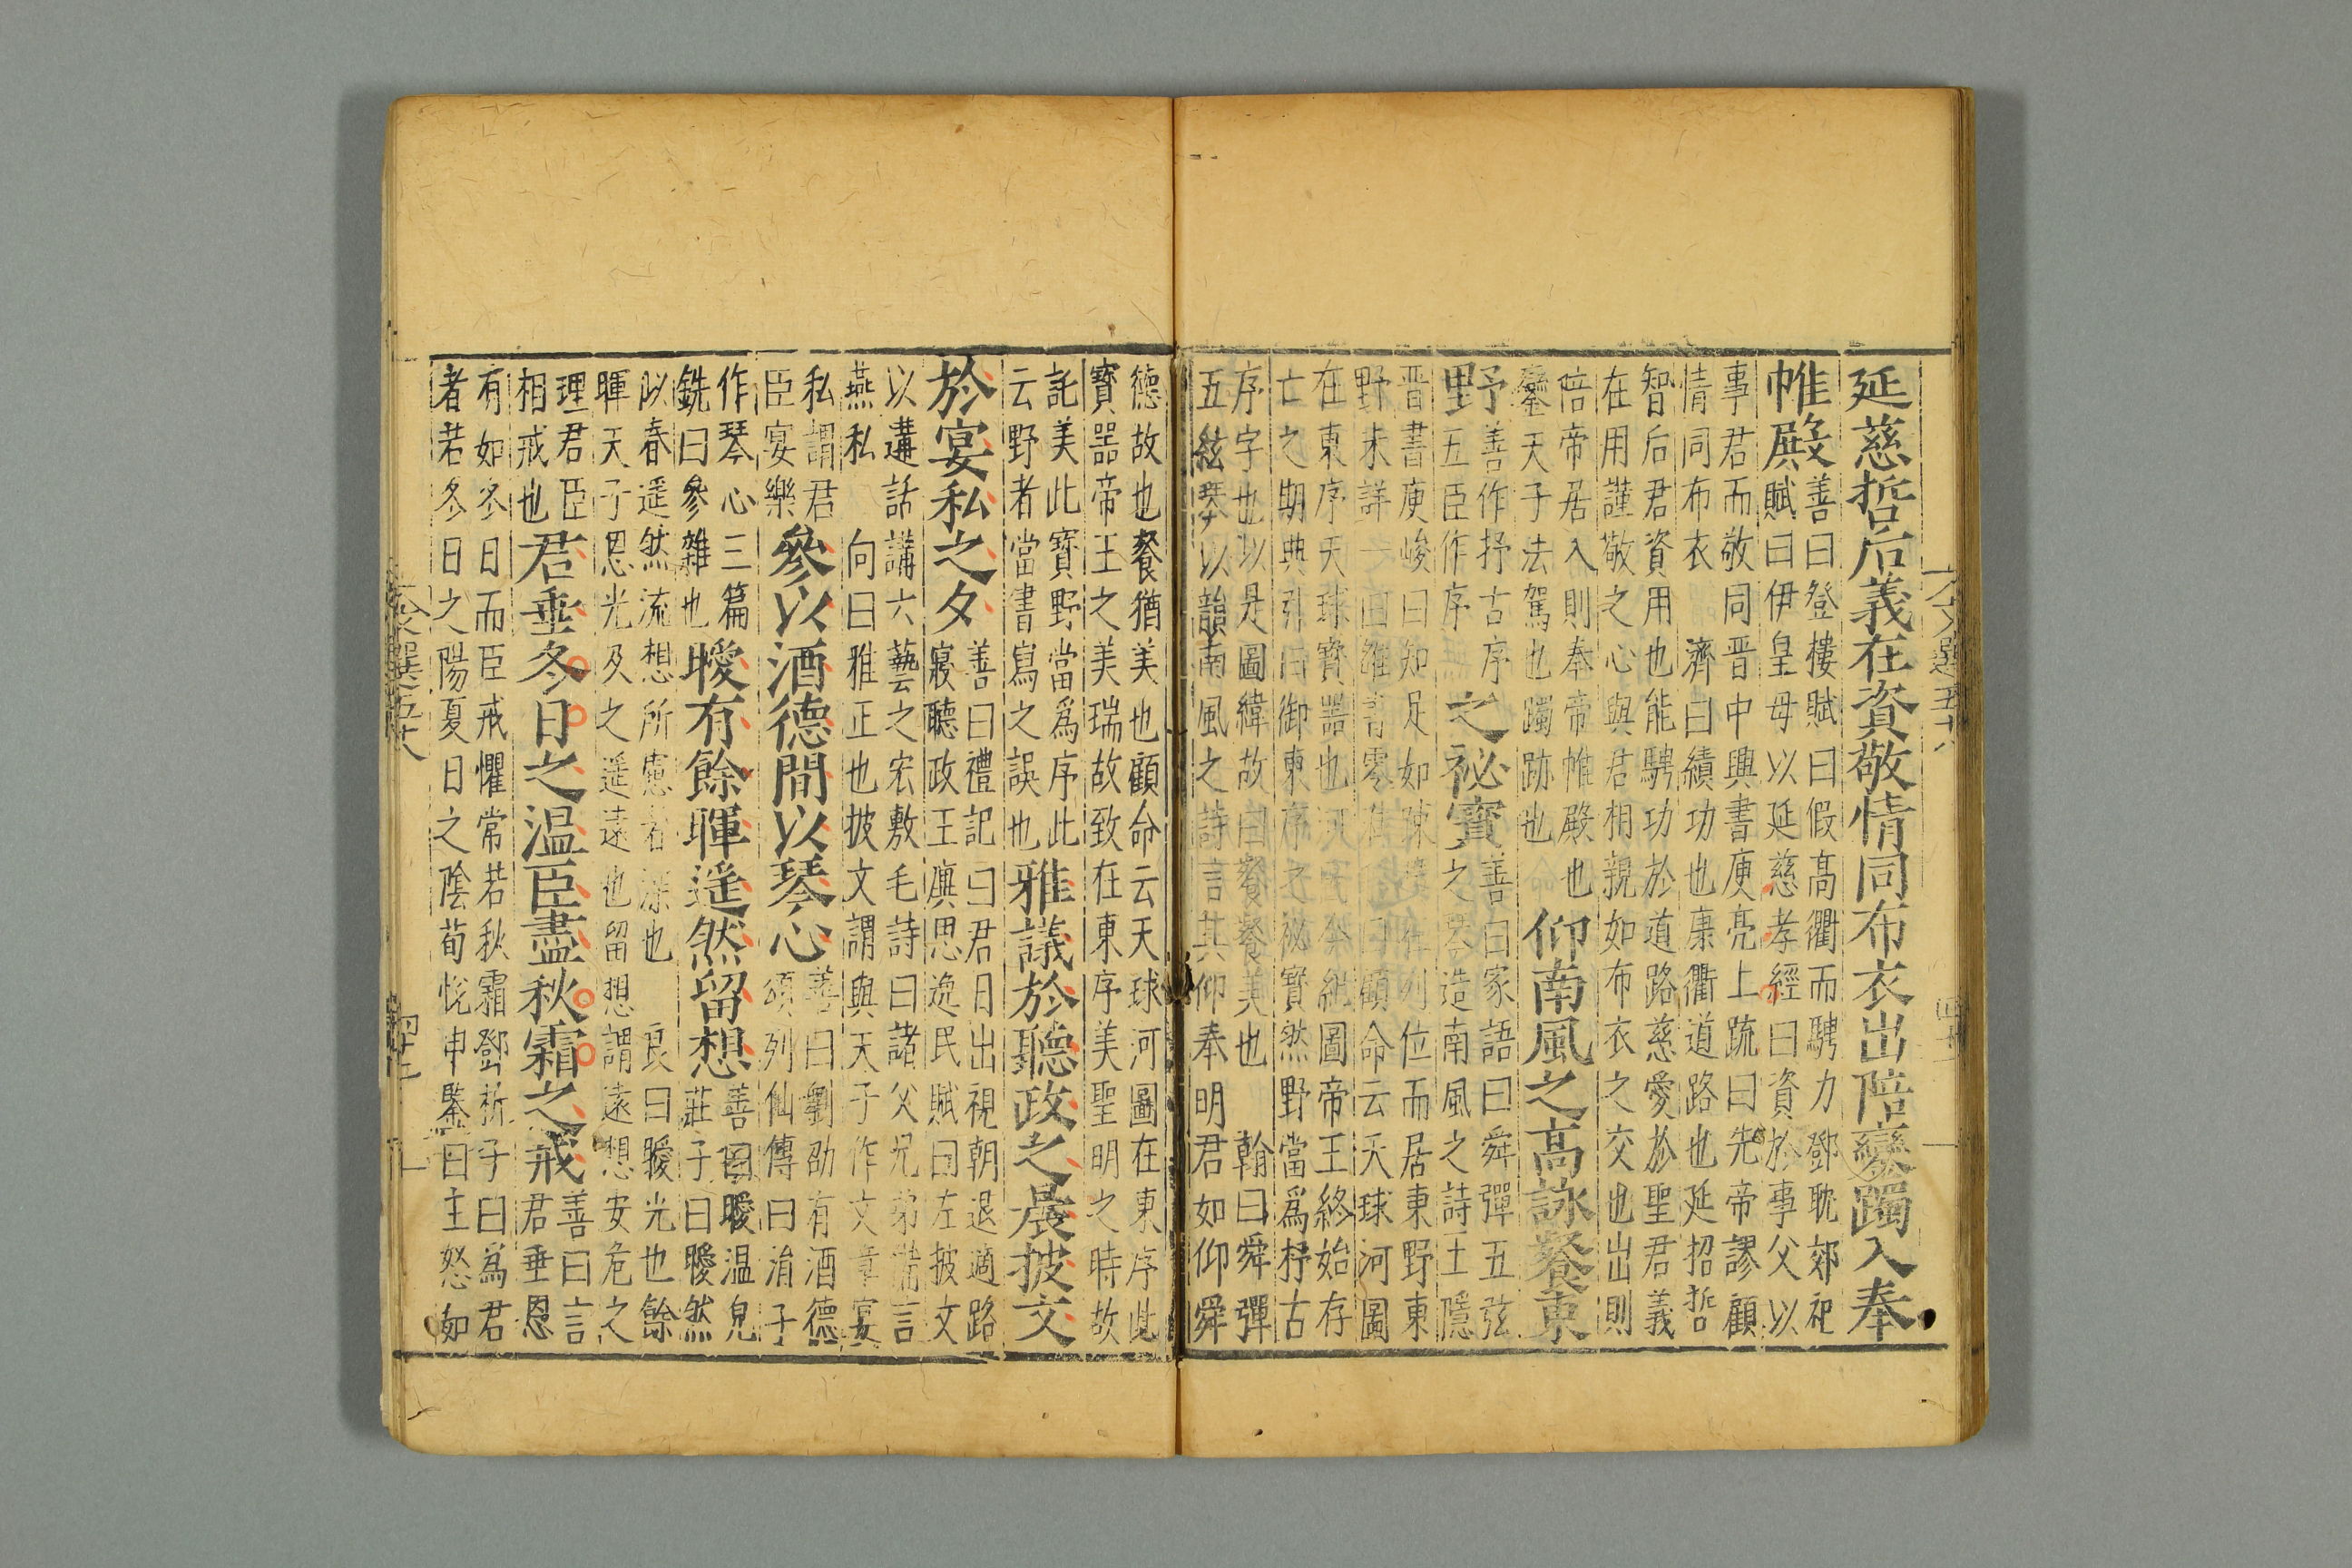 延慈哲后義在資敬情同布衣出陪鑾躅入奉
帷殿
善曰登樓賦曰假高衢而騁力鄧耽郊祀
賦曰伊皇母以延慈孝經曰資於事父以
事君而敬同晋中興書庾亮上疏曰先帝謬顧
情同布衣 濟曰績功也康衢道路也延招哲
智后君資用也能騁功於道路慈愛於聖君義
在用謹敬之心與君相親如布衣之交也出則
陪帝居入則奉帝帷殿也
鑾天子法駕也躅跡也
仰南風之高詠餐東
野
善作抒古序
五臣作序
之祕寳
善曰家語曰舜彈五弦
之琴造南風之詩王隱
晋書庾峻曰知足如踈廣 列位而居東野東
野未詳一曰雒書零准 顧命云天球河圖
在東序天球寳噐也河 圖帝王終始存
亡之期典引曰御東序之祕寳然野當爲杼古
序字也以是圖緯故曰餐餐美也 翰曰舜彈
五絃琴以韻南風之詩言其仰奉明君如仰舜
德故也餐猶美也顧命云天球河圖在東序此
寳噐帝王之美瑞故致在東序美聖明之時故
託美此寳野當爲序此
云野者當書寫之誤也
雅議於聽政之晨披文
於宴私之夕
善曰禮記曰君日出視朝退適路
寢聽政王廙思逸民賦曰左披文
以遘話講六藝之宏敷毛詩曰諸父兄弟備言
燕私 向曰雅正也披文謂與天子作文章宴
私謂君
臣宴樂
參以酒德間以琴心
善曰劉劭有酒德
頌列仙傳曰涓子
作琴心三篇
銑曰參雜也
曖有餘暉遥然留想
善曰曖温皃
莊子曰曖然
似春遥然流想所慮者深也 良曰曖光也餘
暉天子恩光及之遥遠也留想謂遠想安危之
理君臣
相戒也
君垂冬日之温臣盡秋霜之戒
善曰言
君垂恩
有如冬日而臣戒懼常若秋霜鄧析子曰爲君
者若冬日之陽夏日之陰荀悅申鑒曰主怒如